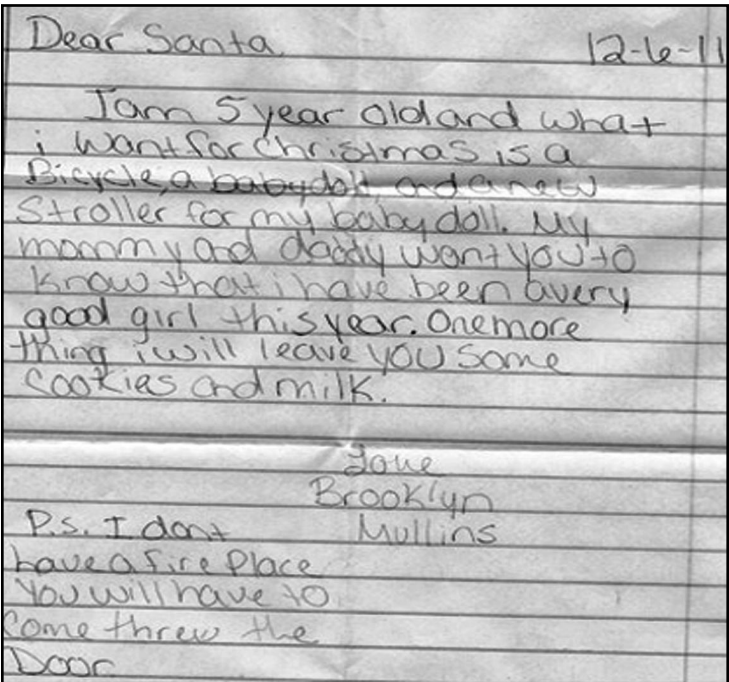 Dear Santa 12-6-11
I am 5 year old and what
i want for christmas is a
Bicycle, a babydoll, and a new
Stroller for my baby doll. My
mommy and daddy want you to
know that i have been a very
good girl this year. One more
thing i will leave you some
cookies and milk.
Love
Brooklyn
P.s. I dont Mullins
have a fire place
You will have to
come threw the
Door